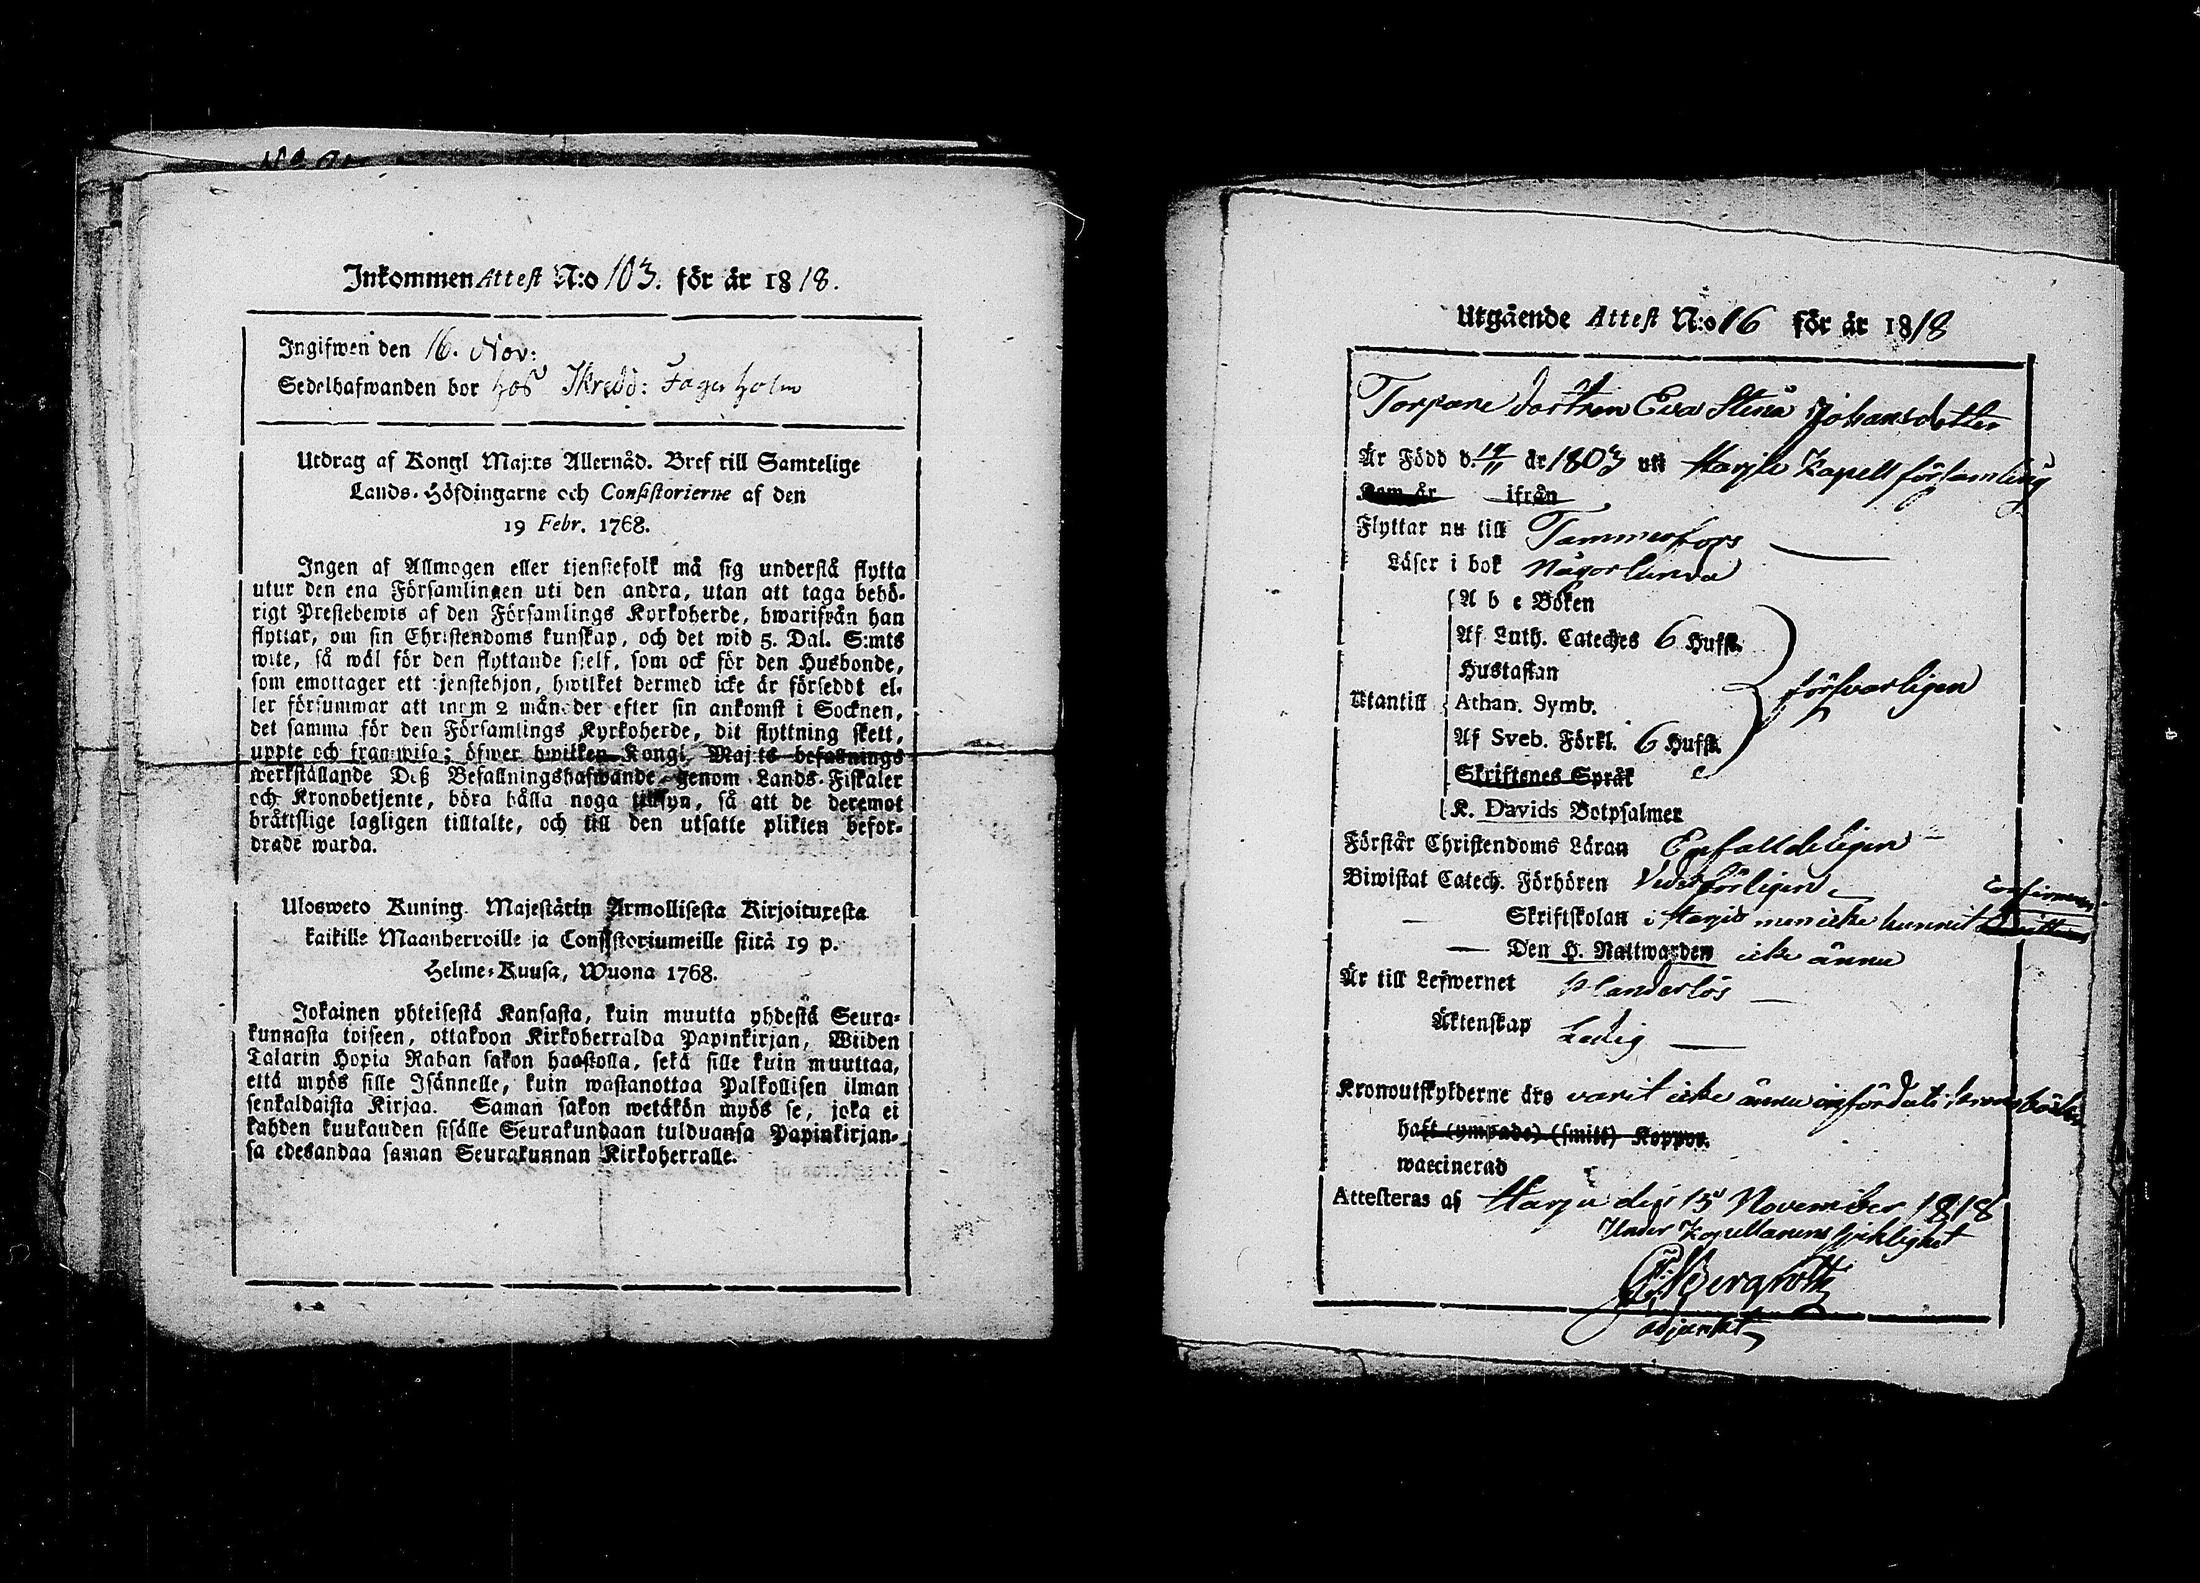 Inkommen Attest N:o 103. för år 1818.
Ingifwen den 16. Nov:
Sedelhafwanden bor hos Skrädd: Fagerholm
Utdrag af Kongl Maj:ts Allernåd. Bref till Samtelige
Lands-Höfdingarne och Consistorierne af den
19 Febr. 1768.
Ingen af Allmogen eller tjenstefolk må sig understå flytta
utur den ena Församlingen uti den andra, utan att taga behö-
rigt Prestebewis af den Församlings Kyrkoherde, hwarifrån han
flyttar, om sin Christendoms kunskap, och det wid 5. Dal. S:mts
wite, så wäl för den flyttande sjelf, som ock för den Husbonde,
som emottager ett tjenstehjon, hwilket dermed icke är förseddt el-
ler försummar att inom 2 månader efter sin ankomst i Socknen,
det samma för den Församlings Kyrkoherde, dit flyttning skett,
uppte och framwisa; öfwer hwilken Kongl. Maj:ts befallnings
werkställande Deß Befallningshafwande genom Lands-Fiskaler
och Kronobetjente, böra hålla noga tillsyn, så att de deremot
bråttslige lagligen tilltalte, och till den utsatte plikten befor-
drade warda.
Ulosweto Kuning. Majestätin Armollisesta Kirjoituxesta
kaikille Maanherroille ja Consistoriumeille siitä 19 p.
Helme-Kuusa, Wuona 1768.
Jokainen yhteisestä Kansasta, kuin muutta yhdestä Seura-
kunnasta toiseen, ottakoon Kirkoherralda Papinkirjan, Wiiden
Talarin Hopia Rahan sakon haastolla, sekä sille kuin muuttaa,
että myös sille Isännelle, kuin wastanottaa Palkollisen ilman
senkaldaista Kirjaa. Saman sakon wetäkön myös se, joka ei
kahden kuukauden sisälle Seurakundaan tulduansa Papinkirjan-
sa edesandaa saman Seurakunnan Kirkoherralle.
Utgående Attest N:o 16 för år 1818
Torpare dottren Eva Stina Johansdotter
Är Född d. år 1803 uti Harju Kapell församling
Kom år ifrån
Flyttar nu till Tammerfors
Läser i bok Någorlunda
A b c Boken
Af Luth. Cateches 6 Hufst.
Hustaflan
Utantill Athan. Symb. försvarligen
Af Sveb. Förkl. 6 Hufst.
Skriftenes Språk
K. Davids Botpsalmer
Förstår Christendoms Läran Enfalldeligen
Biwistat Catech. Förhören Vederbörligen
Skriftskolan i Harju men icke hunnit confirmeras
Den H. Nattwarden icke ännu
Är till Lefwernet klanderlös
Äktenskap Ledig
Kronoutskylderne äro varit icke ännu införd uti
haft (ympade) (smitt) Koppor.
waccinerad
Attesteras af Harju den 15 November 1818
Under Kapellanens sjuklighet
Bergroth
adjunkt